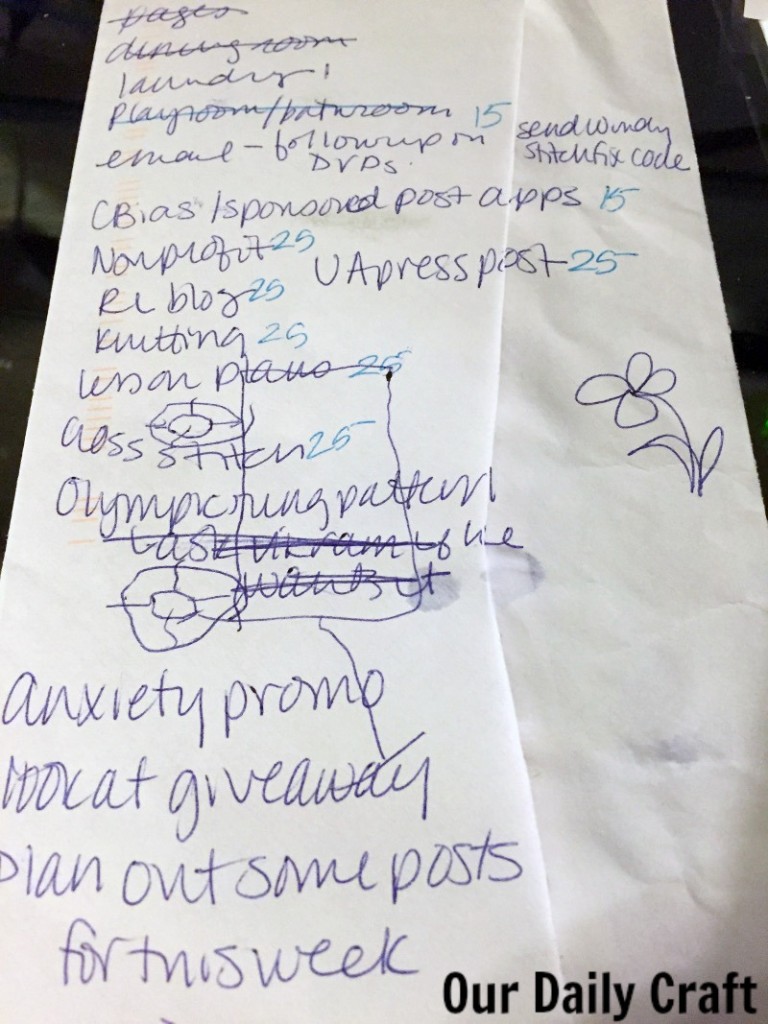 pages
dining room
laundry 1
playroom/bathroom 15
email - followup on
DVDs.
send Wendy
stitchfix code
CBias/sponsored post apps 15
Nonprofit 25
UA press post 25
RL blog 25
knitting 25
lesson plans 25
Cross
stitch 25
Olympic rung pattern
task if he
wants it
anxiety promo
look at giveaway
plan out some posts
for this week
Our Daily Craft